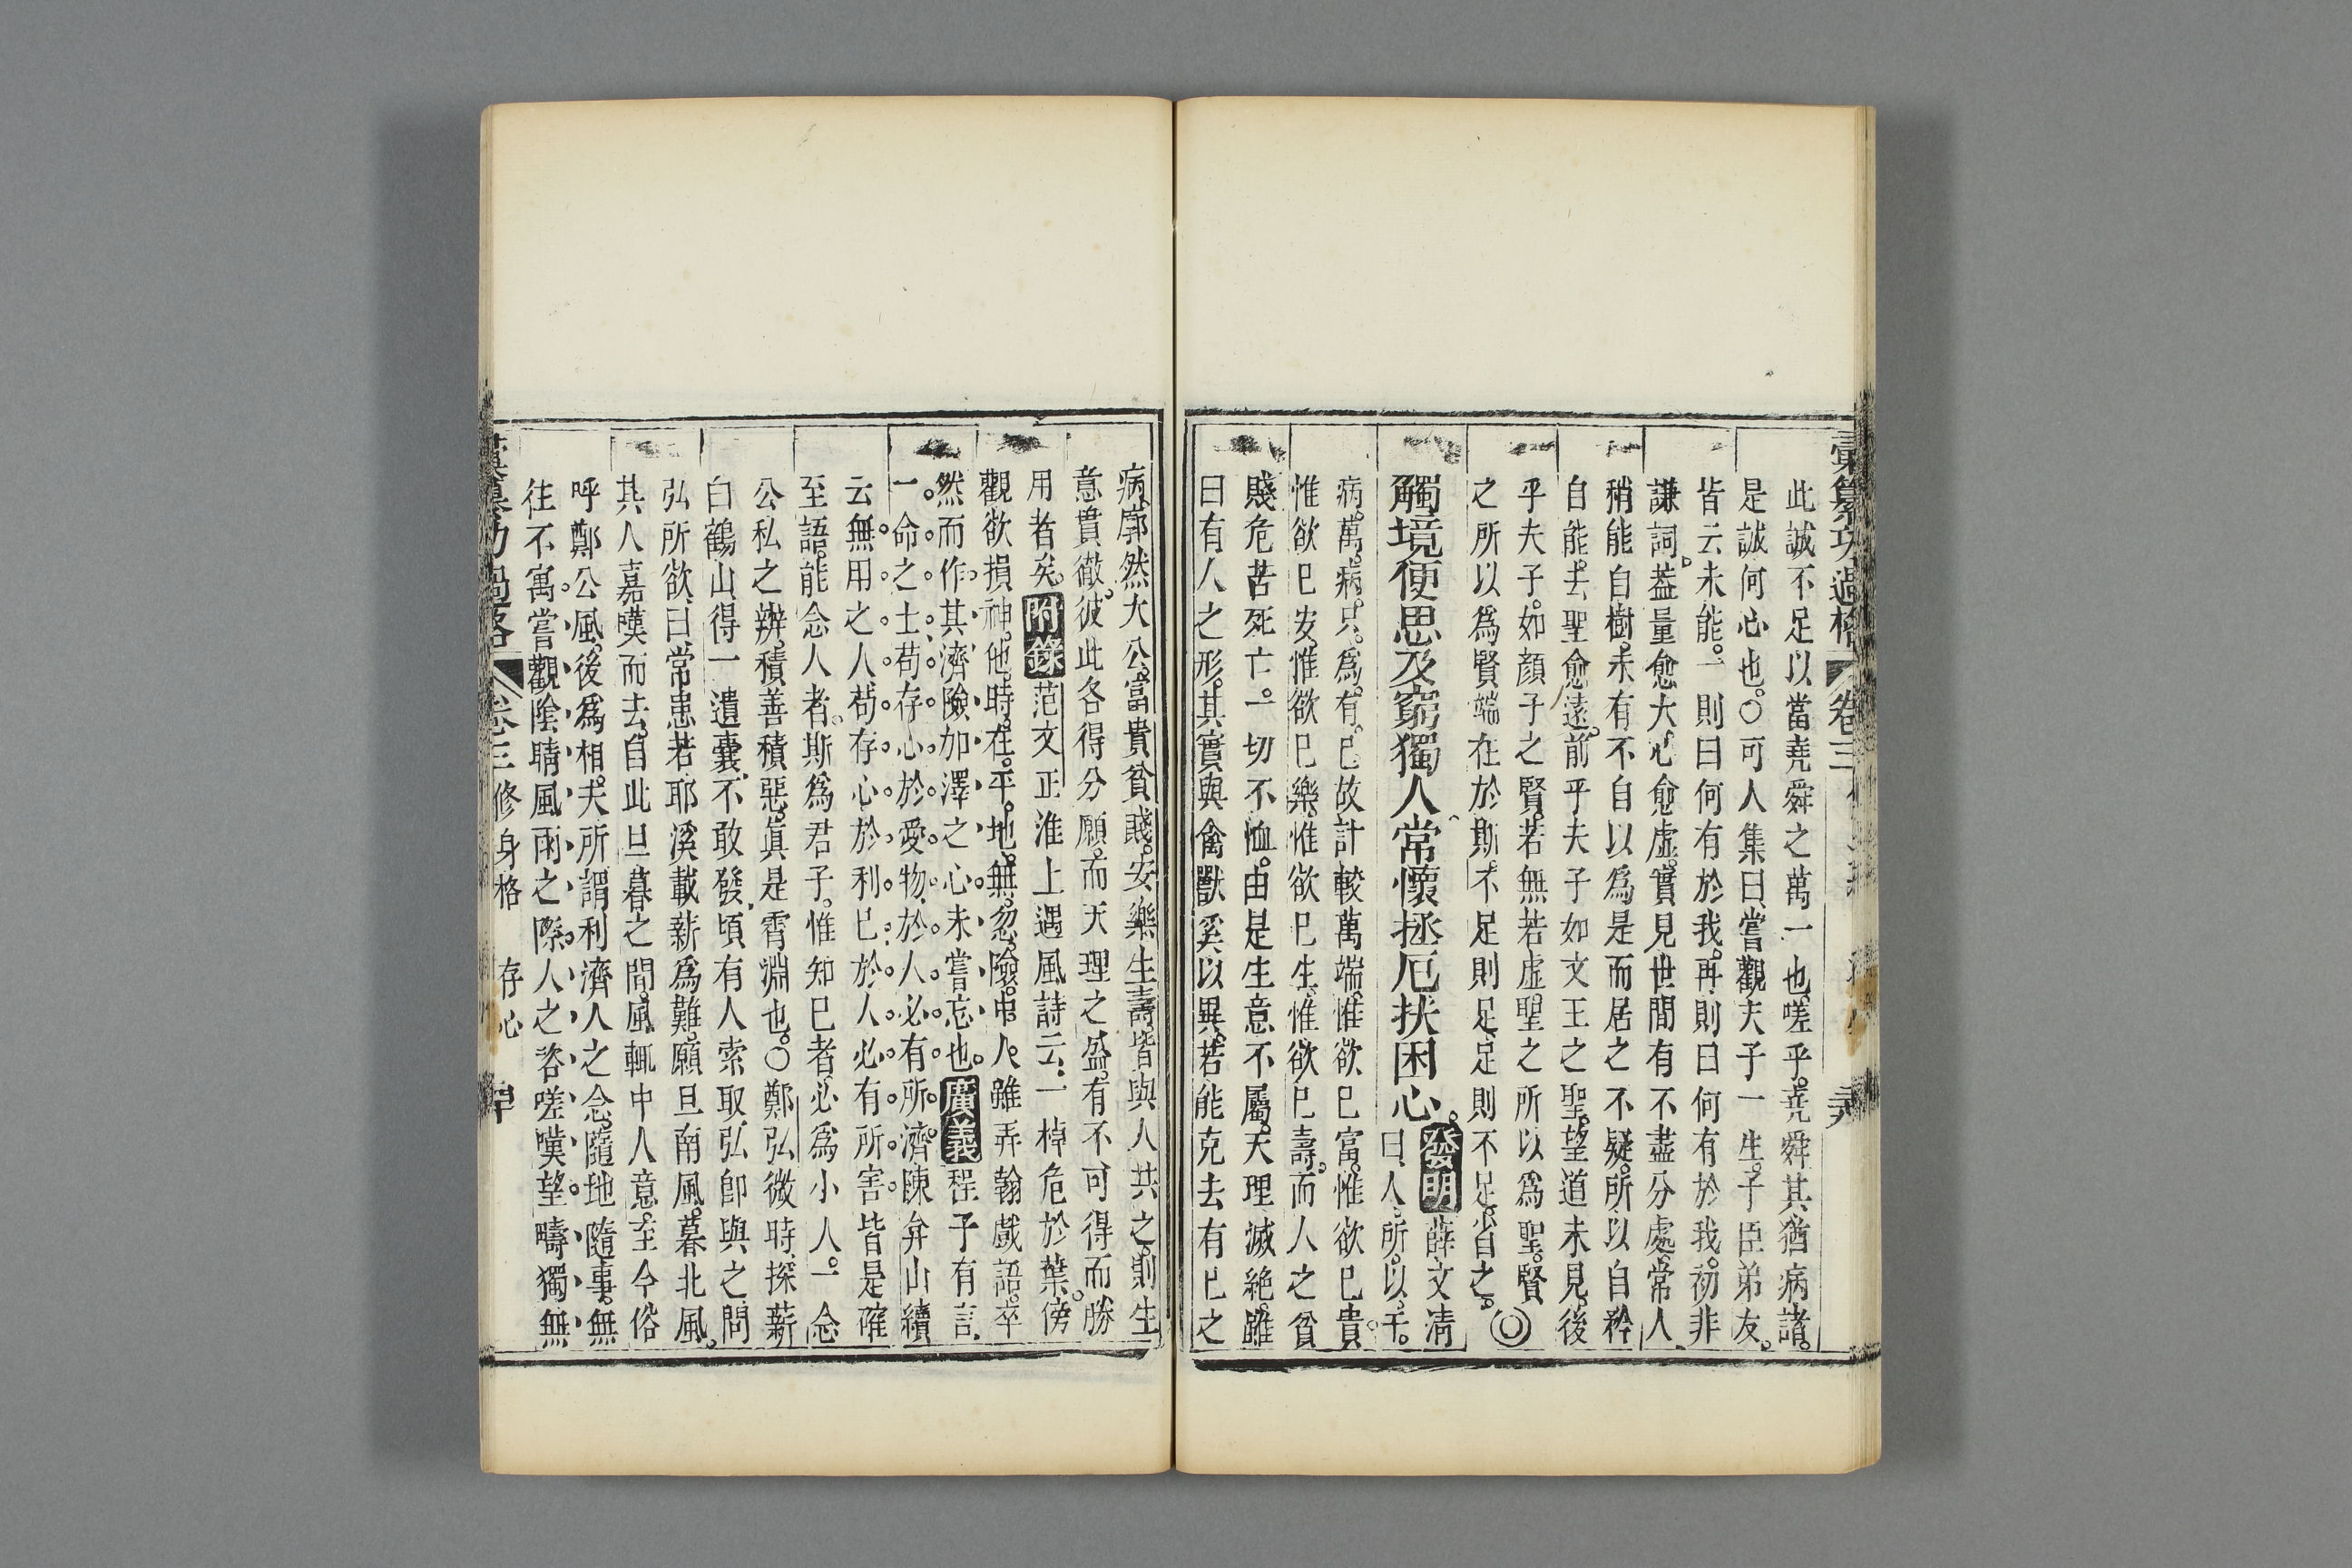 彙纂功過格 卷三
此誠不足以當堯舜之萬一也嗟乎堯舜其猶病諸
是誠何心也○可人集曰嘗觀夫子一生子臣弟友
皆云未能一則曰何有於我再則曰何有於我初非
謙詞葢量愈大心愈虛實見世間有不盡分處常人
稍能自樹未有不自以為是而居之不疑所以自矜
自能去聖愈遠前乎夫子如文王之聖望道未見後
乎夫子如顏子之賢若無若虛聖之所以為聖賢
之所以爲賢端在於斯不足則足足則不足省之◎
觸境便思及窮獨人常懷拯厄扶困心發明薛文清
曰人所以千
病萬病只爲有己故計較萬端惟欲己富惟欲己貴
惟欲己安惟欲己樂惟欲己生惟欲己壽而人之貧
賤危苦死亡一切不恤由是生意不屬天理滅絕雖
曰有人之形其實與禽獸奚以異若能克去有己之
病廓然大公富貴貧賤安樂生壽皆與人共之則生
意貫徹彼此各得分願而天理之盛有不可得而勝
用者矣附錄范文正淮上遇風詩云一棹危於葉傍
觀欲損神他時在平地無忽險中人雖弄翰戲語卒
然而作其濟險加澤之心未嘗忘也廣義程子有言
一命之士苟存心於愛物於人必有所濟陳弁山續
云無用之人苟存心於利己於人必有所害皆是確
至語能念人者斯爲君子惟知己者必爲小人一念
公私之辨積善積惡眞是霄淵也○鄭弘微時採薪
白鶴山得一遺囊不敢發頃有人索取弘卽與之問
弘所欲曰常患若耶溪載薪爲難願旦南風暮北風
其人嘉嘆而去自此旦暮之間風輒中人意至今俗
呼鄭公風後爲相夫所謂利濟人之念隨地隨事無
往不寓嘗觀陰晴風雨之際人之咨嗟嘆望疇獨無
彙纂功過格 卷三 修身格 存心